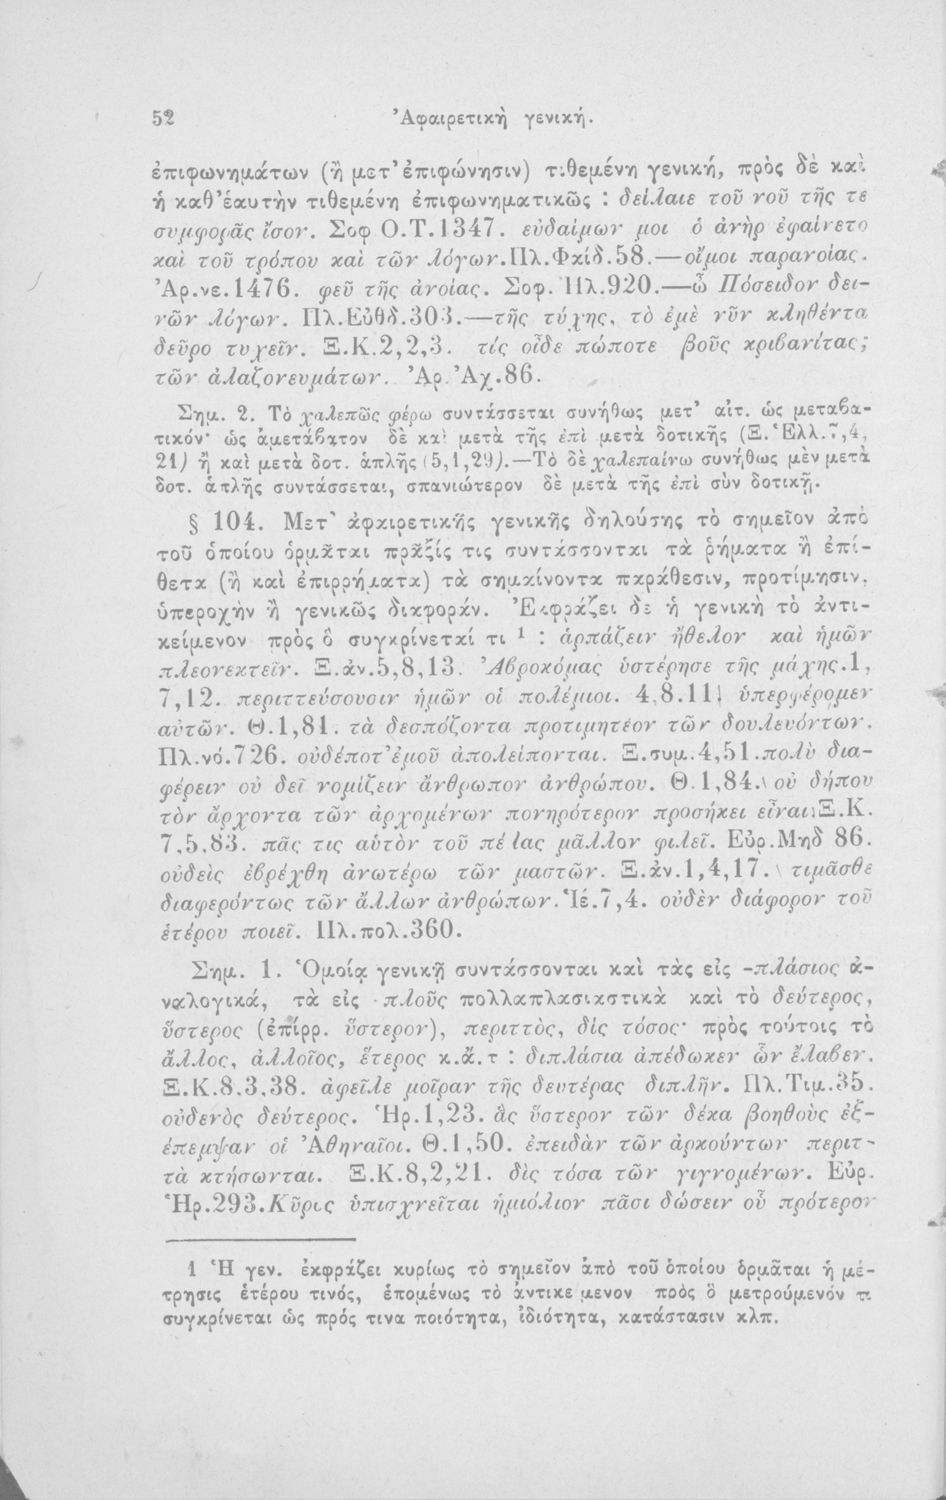 52 Ἀφαιρετικὴ γενική.
ἐπιφωνημάτων (ἢ μετ’ ἐπιφώνησιν) τιθεμένη γενική, πρὸς δὲ καὶ
ἡ καθ’ ἑαυτὴν τιθεμένη ἐπιφωνηματικῶς : δείλαιε τοῦ νοῦ τῆς τε
συμφορᾶς ἴσον. Σοφ Ο.Τ.1347. εὐδαίμων μοι ὁ ἀνὴρ ἐφαίνετο
καὶ τοῦ τρόπου καὶ τῶν λόγων. Πλ.Φαίδ.58.—οἴμοι παρανοίας.
Ἀρ.νε.1476. φεῦ τῆς ἀνοίας. Σοφ. Ἠλ.920.—ὦ Πόσειδον δει-
νῶν λόγων. Πλ.Εὐθδ.303.—τῆς τύχης, τὸ ἐμὲ νῦν κληθέντα
δεῦρο τυχεῖν. Ξ.Κ.2,2,3. τίς οἶδε πώποτε βοῦς κριβανίτας;
τῶν ἀλαζονευμάτων. Ἀρ. Ἀχ.86.
Σημ. 2. Τὸ χαλεπῶς φέρω συντάσσεται συνήθως μετ’ αἰτ. ὡς μεταβα-
τικόν· ὡς ἀμετάβατον δὲ καὶ μετὰ τῆς ἐπὶ μετὰ δοτικῆς (Ξ. Ἑλλ.7,4,
21) ἢ καὶ μετὰ δοτ. ἁπλῆς (5,1,29).—Τὸ δὲ χαλεπαίνω συνήθως μὲν μετὰ
δοτ. ἁπλῆς συντάσσεται, σπανιώτερον δὲ μετὰ τῆς ἐπὶ σὺν δοτικῇ.
§ 104. Μετ’ ἀφαιρετικῆς γενικῆς δηλούσης τὸ σημεῖον ἀπὸ
τοῦ ὁποίου ὁρμᾶται πρᾶξίς τις συντάσσονται τὰ ῥήματα ἢ ἐπί-
θετα (ἢ καὶ ἐπιρρήματα) τὰ σημαίνοντα παράθεσιν, προτίμησιν,
ὑπεροχὴν ἢ γενικῶς διαφοράν. Ἐκφράζει δὲ ἡ γενικὴ τὸ ἀντι-
κείμενον πρὸς ὃ συγκρίνεταί τι ¹ : ἁρπάζειν ἤθελον καὶ ἡμῶν
πλεονεκτεῖν. Ξ.ἀν.5,8,13. Ἀβροκόμας ὑστέρησε τῆς μάχης.1,
7,12. περιττεύσουσιν ἡμῶν οἱ πολέμιοι. 4,8.11. ὑπερφέρομεν
αὐτῶν. Θ.1,81. τὰ δεσπόζοντα προτιμητέον τῶν δουλευόντων.
Πλ.νό.726. οὐδέποτ’ ἐμοῦ ἀπολείπονται. Ξ.συμ.4,51.πολὺ δια-
φέρειν οὐ δεῖ νομίζειν ἄνθρωπον ἀνθρώπου. Θ.1,84. οὐ δήπου
τὸν ἄρχοντα τῶν ἀρχομένων πονηρότερον προσήκει εἶναι. Ξ.Κ.
7,5,83. πᾶς τις αὑτὸν τοῦ πέλας μᾶλλον φιλεῖ. Εὐρ.Μηδ 86.
οὐδεὶς ἐβρέχθη ἀνωτέρω τῶν μαστῶν. Ξ.ἀν.1,4,17. τιμᾶσθε
διαφερόντως τῶν ἄλλων ἀνθρώπων. Ἱέ.7,4. οὐδὲν διάφορον τοῦ
ἑτέρου ποιεῖ. Πλ.πολ.360.
Σημ. 1. Ὁμοίᾳ γενικῇ συντάσσονται καὶ τὰς εἰς -πλάσιος ἀ-
ναλογικά, τὰ εἰς -πλοῦς πολλαπλασιαστικὰ καὶ τὸ δεύτερος,
ὕστερος (ἐπίρρ. ὕστερον), περιττὸς, δὶς τόσος· πρὸς τούτοις τὸ
ἄλλος, ἀλλοῖος, ἕτερος κ.ἄ.τ : διπλάσια ἀπέδωκεν ὧν ἔλαβεν.
Ξ.Κ.8.3.38. ἀφεῖλε μοῖραν τῆς δευτέρας διπλῆν. Πλ.Τιμ.35.
οὐδενὸς δεύτερος. Ἡρ.1,23. ἃς ὕστερον τῶν δέκα βοηθοὺς ἐξ-
έπεμψαν οἱ Ἀθηναῖοι. Θ.1,50. ἐπειδὰν τῶν ἀρκούντων περιτ-
τὰ κτήσωνται. Ξ.Κ.8,2,21. δὶς τόσα τῶν γιγνομένων. Εὐρ.
Ἡρ.293.Κῦρος ὑπισχνεῖται ἡμιόλιον πᾶσι δώσειν οὗ πρότερον
1 Ἡ γεν. ἐκφράζει κυρίως τὸ σημεῖον ἀπὸ τοῦ ὁποίου ὁρμᾶται ἡ μέ-
τρησις ἑτέρου τινός, ἑπομένως τὸ ἀντικείμενον πρὸς ὃ μετρούμενόν τι
συγκρίνεται ὡς πρός τινα ποιότητα, ἰδιότητα, κατάστασιν κλπ.